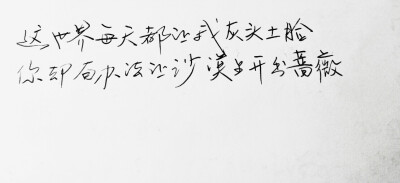 这世界每天都让我灰头土脸
你却有办法让沙漠里开出蔷薇